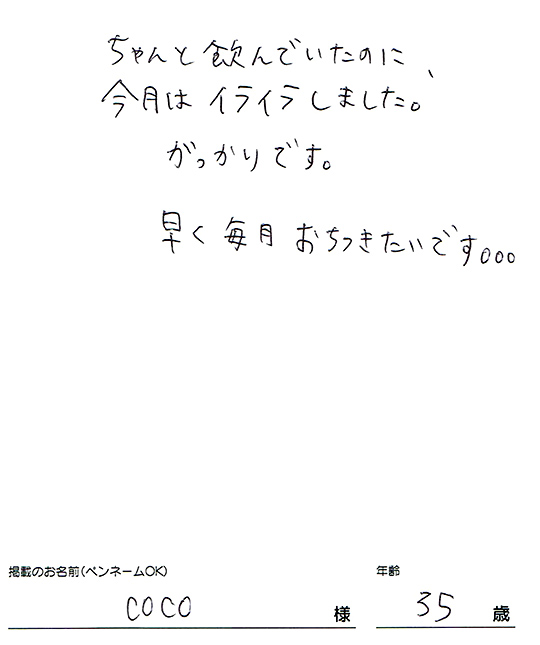 ちゃんと飲んでいたのに、
今月はイライラしました。
がっかりです。
早く毎月おちつきたいです。。。
掲載のお名前(ペンネームOK)
年齢
COCO 様
35 歳